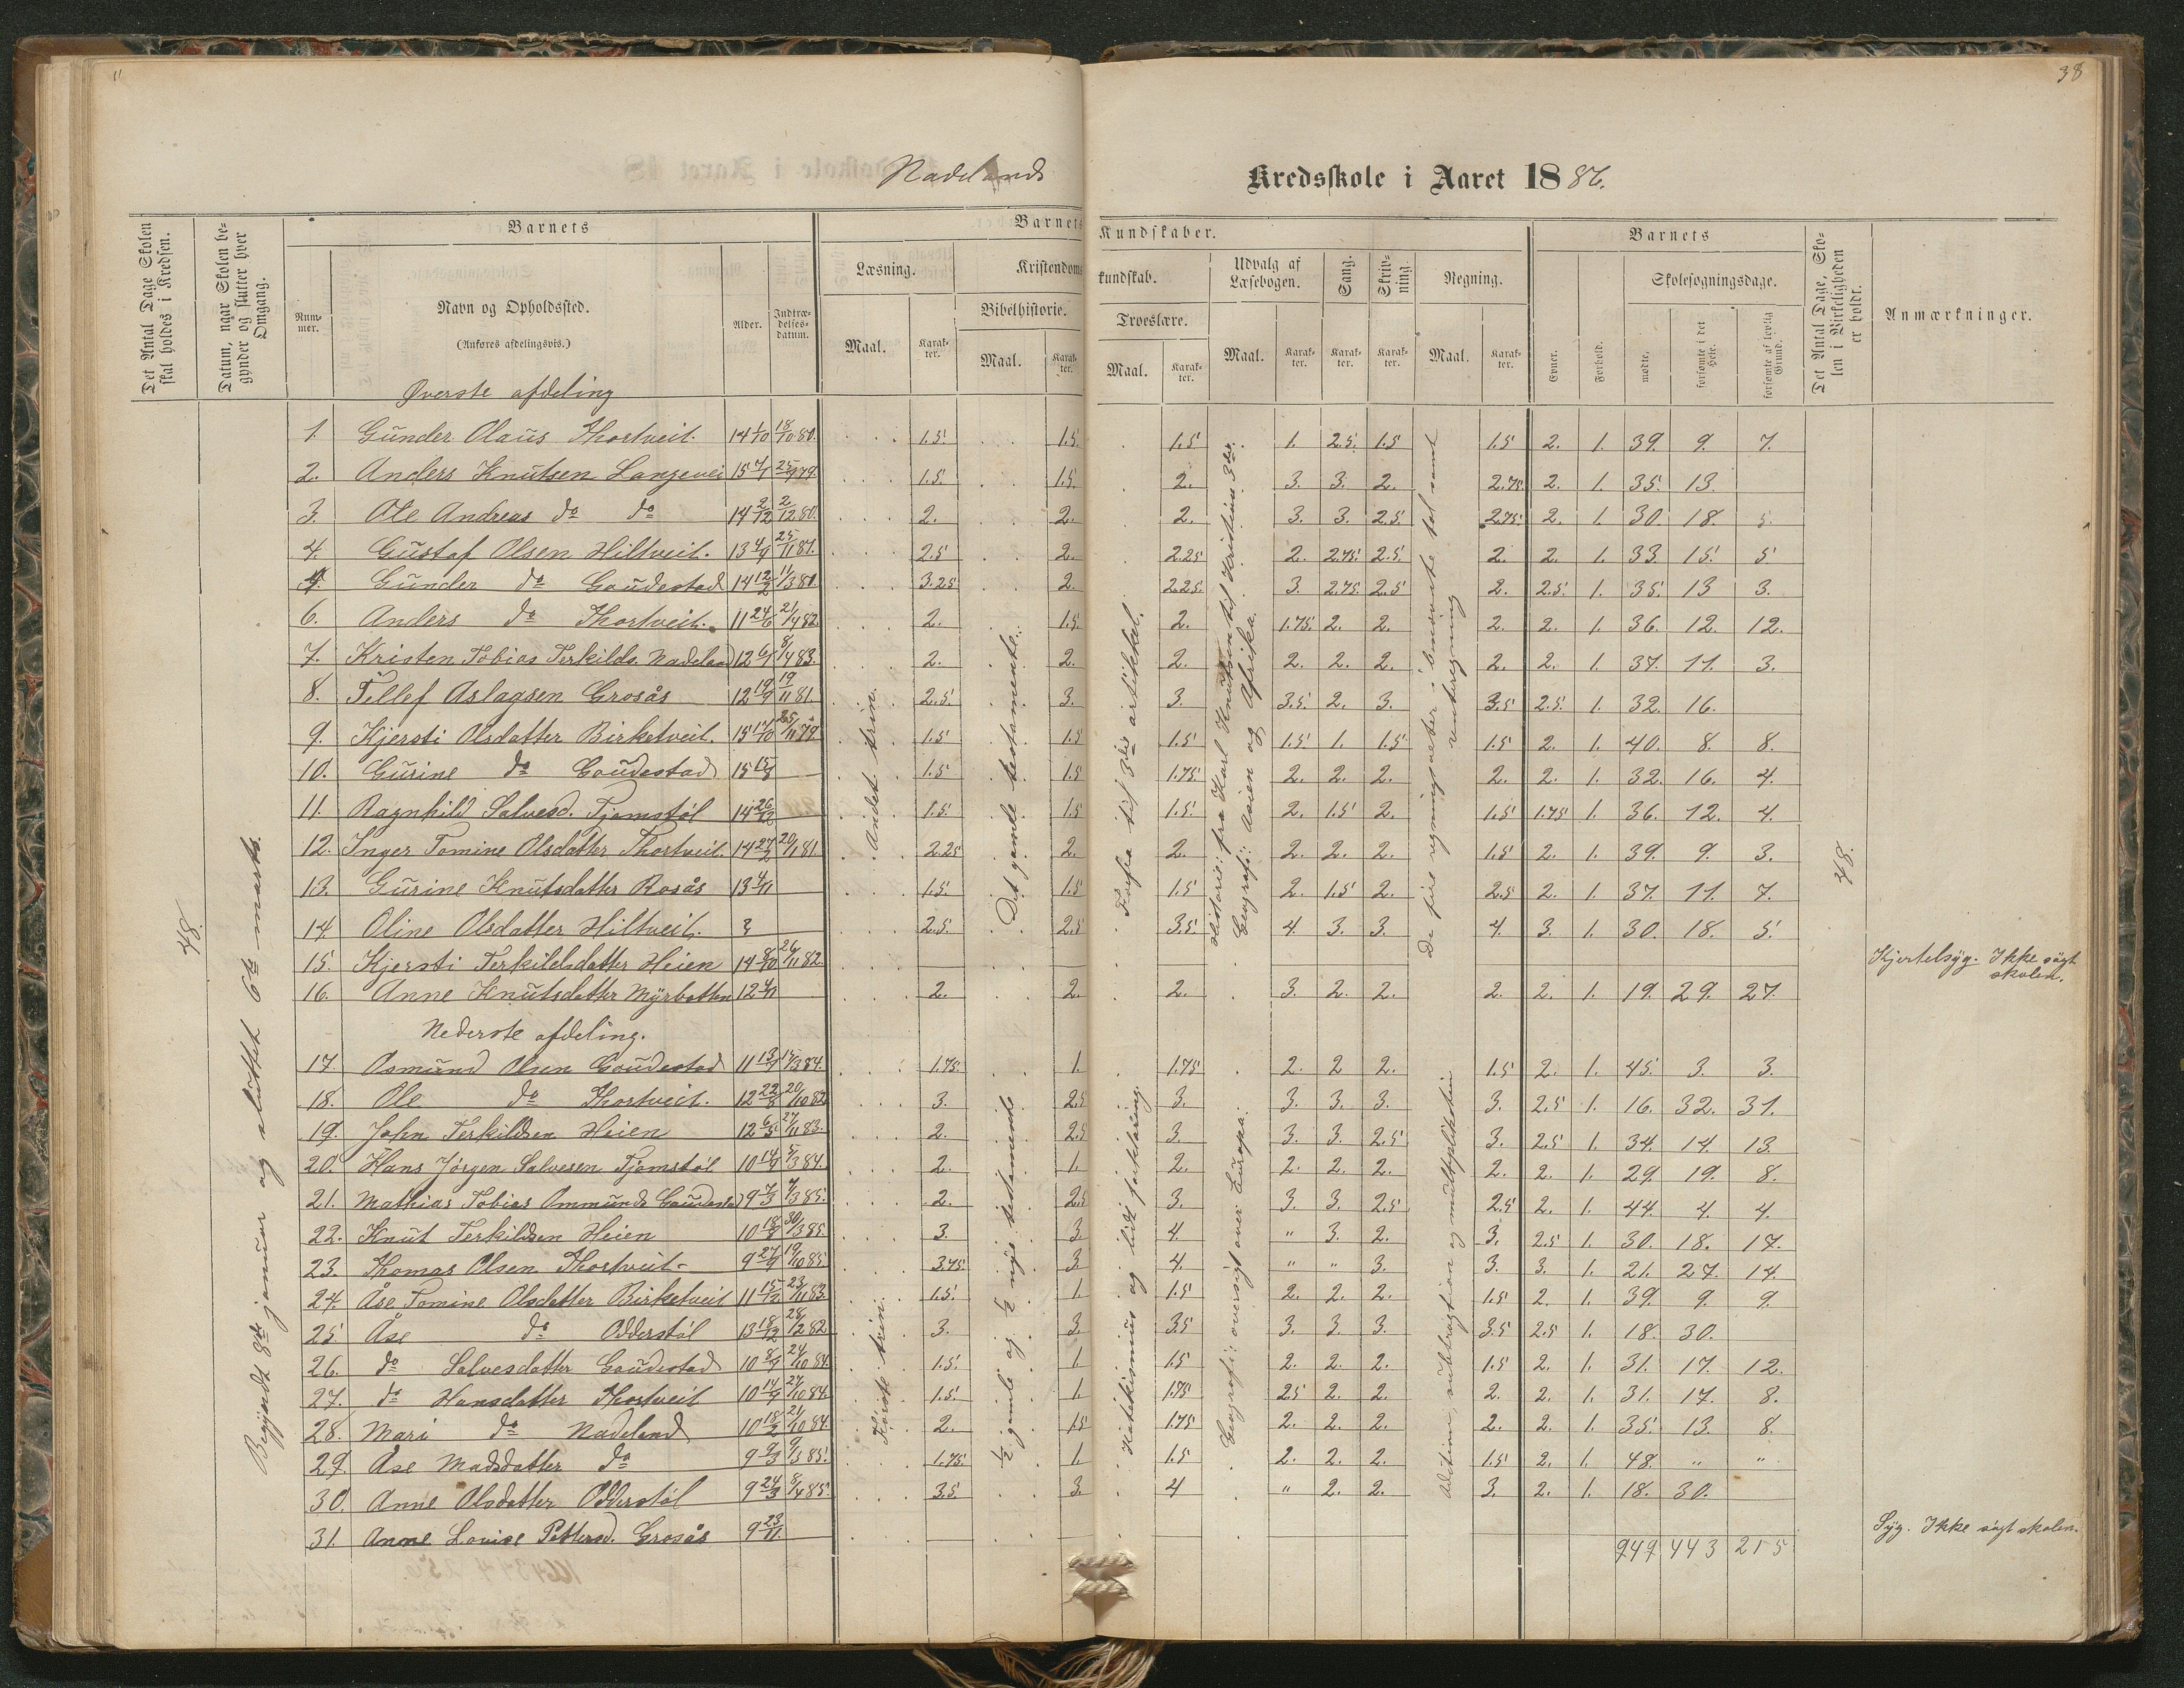 38
Nadelands Kredsskole i Aaret 1886.
Det Antal Dage Skolen skal holdes i Kredsen.
Datum, naar Skolen begynder og slutter hver Omgang.
Barnets
Nummer.
Navn og Opholdssted.
(Anføres afdelingsvis.)
Alder.
Indtrædelsesdatum.
Barnets Kundskaber.
Læsning.
Maal.
Karakter.
Kristendomskundskab.
Bibelhistorie.
Maal.
Karakter.
Troeslære.
Maal.
Karakter.
Udvalg af Læsebogen.
Maal.
Karakter.
Sang.
Karakter.
Skrivning.
Karakter.
Regning.
Maal.
Karakter.
Barnets
Evner.
Forhold.
Skolesøgningsdage.
mødte.
forsømte i det Hele.
forsømte af lovlig Grund.
Det Antal Dage, Skolen i Virkeligheden er holdt.
Anmærkninger.
48.
Begyndt 8de januar og sluttet 6te marts.
Andet trin.
Det gamle testamente.
Forfra til 3die artikkel.
Historie: fra Karl Knutson til Kristian 3die.
Geografi: Asien og Afrika.
De fire regningsarter i benævnte tal samt renteregning
48.
Øverste afdeling
1. Gunder Olaus Thortveit. 14 1/10 18/10 80. 1.5 1.5 1.5 1. 2.5. 1.5 1.5 2. 1. 39. 9. 7.
2. Anders Knutsen Langevei 15 4/1 25/9 79. 1.5. 1.5. 2. 3. 3. 2. 2.75. 2. 1. 35. 13.
3. Ole Andreas do do 14 2/12 2/12 80. 2. 2. 2. 3. 3. 2.5. 2.75. 2. 1. 30. 18. 5.
4. Gustaf Olsen Hiltveit. 13 4/9 25/11 81. 2.5 2. 2.25 2. 2.75. 2.5. 2. 2. 1. 33. 15. 5
Gunder do Goudestad 14 12/2 11/3 80. 3.25 2. 2.25. 3. 2.75. 2.5 2. 2.5. 1. 35. 13 3.
6. Anders do Thortveit. 11 24/6 21/4 82 2. 1.5. 2. 1.75. 2. 2. 2. 2. 1. 36. 12. 12.
7. Kristen Tobias Terkilds. Nadeland 12 6/1 8/1 83. 2. 2. 2. 2. 2. 2. 2. 2. 1. 37. 11. 3.
8. Tellef Aslagsen Grosås 12 19/9 19/11 81. 2.5. 3. 3. 3.5. 2. 3. 3.5 2.5. 1. 32. 16.
9. Kjersti Olsdatter Birketveit. 15 17/10 25/11 79. 1.5 1.5 1.5 1.5. 1. 1.5 1.5 2. 1. 40. 8. 8.
10. Gurine do Goudestad 15 15/8 1.5 1.5 1.75. 2. 2. 2. 2. 2. 1. 32. 16. 4.
11. Ragnhild Salvesd. Tjomstøl 14 26/12 1.5. 1.5 1.5. 2. 1.5 2. 1.5 1.75 1. 36. 12. 4.
12. Inger Tomine Olsdatter Thortveit. 14 27/2 20/1 81. 2.25 2. 2. 2. 2. 2. 1.5 2. 1. 39. 9. 3.
13. Gurine Knutsdatter Rosås 13 4/11 1.5. 1.5 1.5 2. 1.5 2. 2.5 2. 1. 37. 11. 7.
14. Oline Olsdatter Hiltveit. 2.5. 2.5 3.5. 4. 3. 3. 4. 3. 1. 30. 18. 5.
15. Kjersti Terkildsdatter Heien 14 8/10 26/11 82. Kjertelsyg. Ikke søgt skolen.
16. Anne Knutsdatter Myrbotten 12 4/11 2. 2. 2. 3. 2. 2. 2. 2. 1. 19. 29. 27.
Nederste afdeling.
Første trin.
½ gamle og ½ nye testamente
Katekismus og lidt forklaring.
Geografi: oversigt over Europa.
Adition, subtragtion og multiplikation
17. Osmund Olsen Goudestad 11 13/9 15/3 84. 1.75. 1. 1.75. 2. 2 2. 1.5 2. 1. 45. 3. 3.
18. Ole do Thortveit. 12 22/8 20/10 82 3. 2.5 3. 3. 3. 3. 3. 2.5 1. 16. 32. 31.
19. John Terkildsen Heien 12 6/5 27/11 83. 2. 2.5 3. 3. 3. 2.5 3. 2.5 1. 34. 14. 13.
20. Hans Jörgen Salvesen Tjomstøl 10 14/9 5/3 84. 2. 1. 2. 2. 2. 2. 2. 2. 1. 29. 19. 8.
21. Mathias Tobias Ommunds Goudestad 9 7/3 7/3 85. 2. 2.5 3. 3. 3. 2.5 2.5 2. 1. 44. 4. 4.
22. Knut Terkildsen Heien 10 18/8 30/3 85. 3. 3. 4. " 3. 2. 3. 2.5 1. 30. 18. 17.
23. Thomas Olsen Thortveit 9 27/9 19/10 85. 3.75 3. 4. " " 3. 3. 3. 1. 21. 27. 14.
24. Åse Tomine Olsdatter Birketveit 11 15/12 23/11 83. 1.5. 1. 1.5 2. 2. 2. 1.5 2. 1. 39. 9. 9.
25. Åse do Odderstøl 13 18/2 28/12 82. 3. 3. 3.5 3. 3. 3. 3.5 2.5 1. 18. 30.
26. do Salvesdatter Goudestad 10 8/9 24/10 84. 1.5. 1 1.5 2. 2. 2. 1.5 2. 1. 31. 17. 12.
27. do Hansdatter Thortveit 10 14/9 27/10 84. 1.5. 1. 1.75 2.5 2. 2. 2. 2. 1. 31. 17. 8.
28. Mari do Nadeland 10 18/2 21/10 84. 2. 1.5 1.75 2. 2. 2. 2. 2. 1. 35. 13. 8.
29. Åse Madsdatter do 9 9/3 9/3 85. 1.75. 1. 1.5 2. 2. 2. 1.5 2. 1. 48. " "
30. Anne Olsdatter Odderstøl 9 24/3 8/4 85. 3.5. 3. 4 " 2. 2. 3. 2. 1. 18. 30.
31. Anne Louise Pettersd. Grosås 9 23/11. Syg. Ikke søgt skolen.
949 443 215